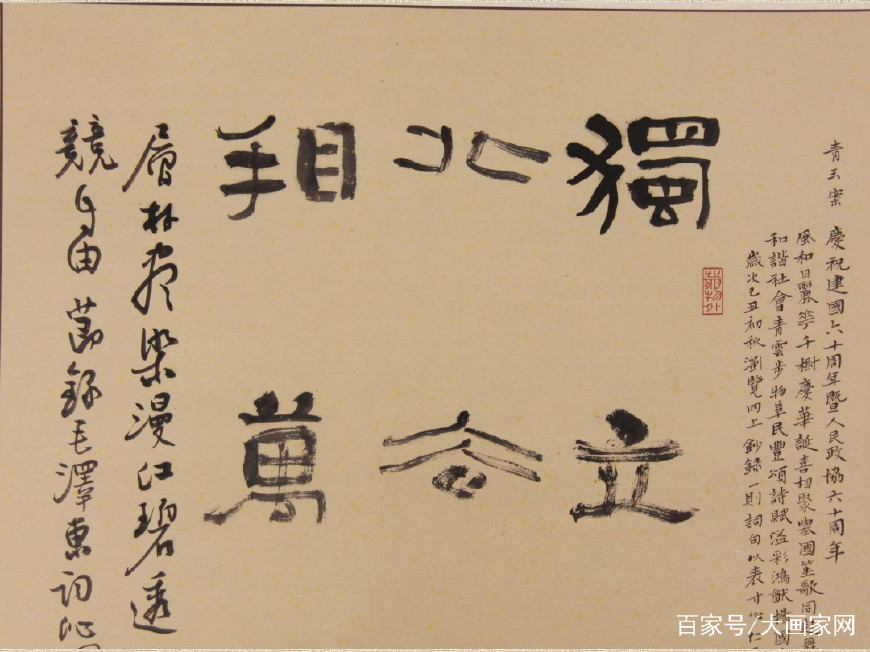 青玉案 慶祝建國六十周年暨人民政協六十周年
風和日麗華千樹慶華誕喜相聚舉國笙歌同起舞
和諧社會青雲步物阜民豐頌詩賦溢彩鴻猷國
歲次己丑初秋瀏覽网上鈔錄一則詞句以表寸心
獨立
北去
看萬
層林盡染漫江碧透
競自由 節錄毛澤東詞沁
百家号/大画家网